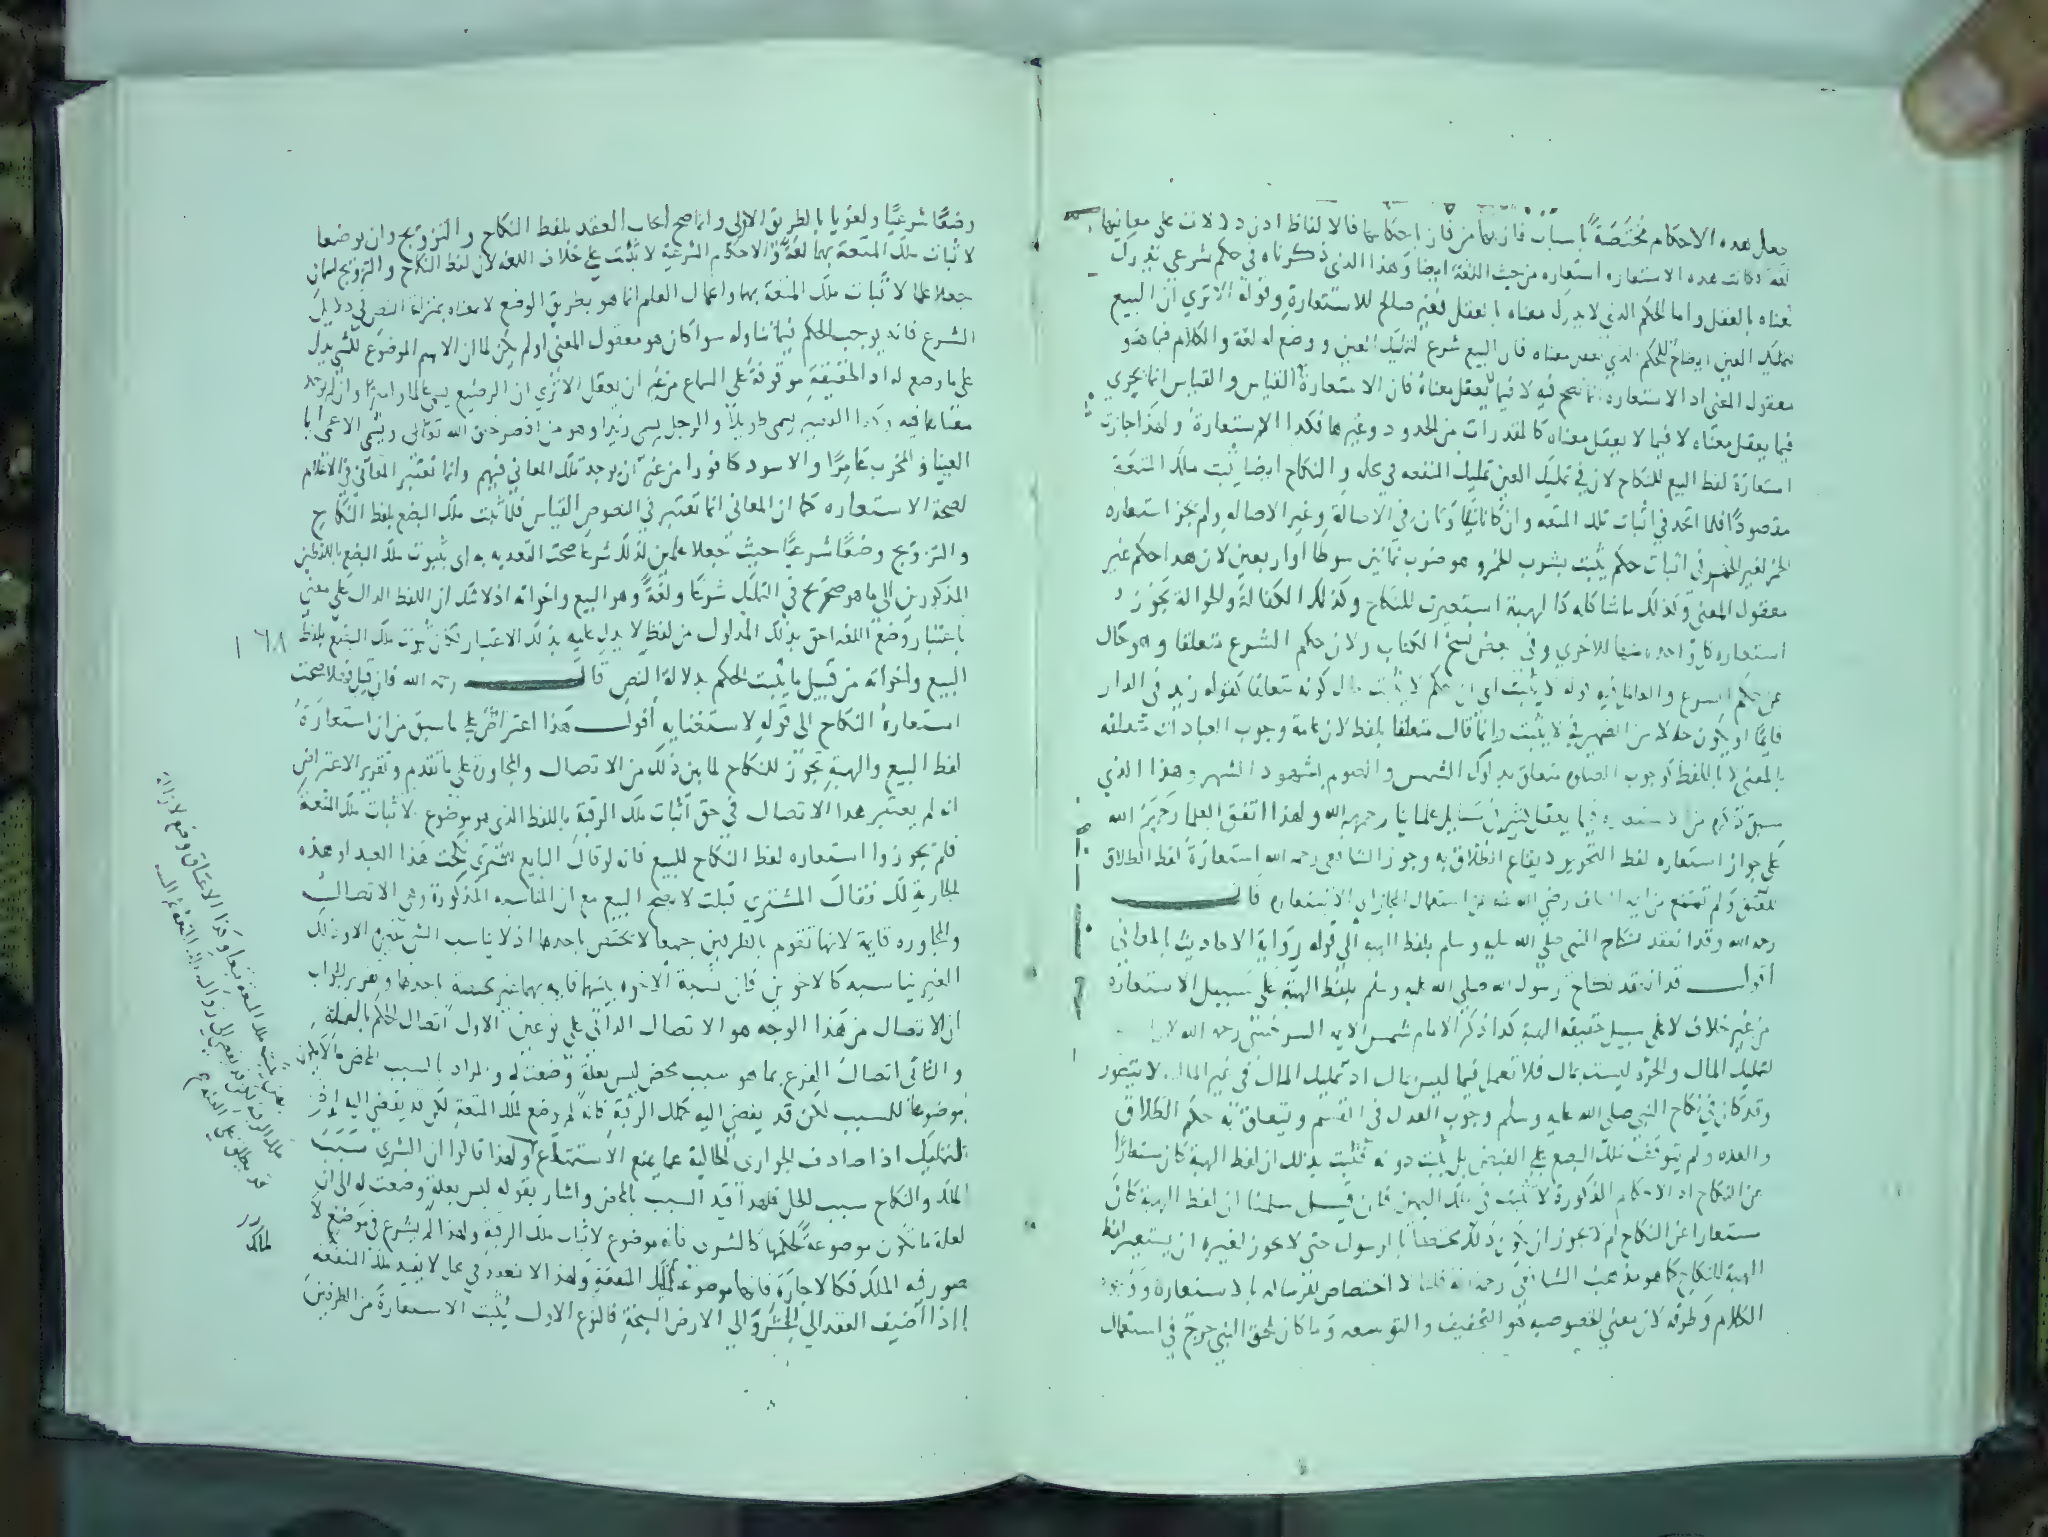 جعل هذه الاحكام مختصة باسباب فان بها من فان احكامها فالالفاظ اذن دلالات على معانيها
لغة وكانت هذه الاستعارة استعارة من حيث اللغة ايضا وهذا الذي ذكرناه في حكم شرعي يدرك
معناه بالعقل واما الحكم الذي لا يدرك معناه بالعقل فغير صالح للاستعارة وقوله الا تري ان البيع
لتمليك العين ايضاح للحكم الذي يعقل معناه فان البيع شرع لتمليك العين ووضع له لغة والكلام فيما هو
معقول المعنى اذ الاستعارة انما تصح فيه لا فيما لا يعقل معناه فان الاستعارة القياس والقياس انما يجري
فيما يعقل معناه لا فيما لا يعقل معناه كالمقدرات من الحدود وغيرها فكذا الاستعارة ولهذا جازت
استعارة لفظ البيع للنكاح لان في تمليك العين تمليك المنفعه في محله والنكاح ايضا يثبت ملك المتعة
مقصودا فلما اتحد في اثبات تلك المتعه وان كانا في الاصالة وغير الاصاله ولم يجز استعاره
الخمر لغير الخمر في اثبات حكم يثبت بشرب الخمر وهو ضرب ثمانين سوطا او اربعين لان هذا حكم غير
معقول المعنى وكذلك ما شاكله كالهبة استعيرت للنكاح وكذلك الكفالة والحوالة يجوز
استعاره كل واحده منهما للاخري وفي بعض نسخ الكتاب ولان حكم الشرع متعلقا وهو حال
عن حكم الشرع والعامل فيه قوله لا يثبت اي ان حكم لا يثبت حال كونه متعلقا كقوله زيد في الدار
قايما او يكون حالا من الضمير في لا يثبت وانما قال متعلقا بلفظ لان عامة وجوب العبادات متعلقه
بالمعنى لا باللفظ كوجوب الصلوة متعلق بدلوك الشمس والصوم بشهود الشهر وهذا الذي
سبق ذكره من الاستعارة فيما يعقل كثير في مسايل علمائنا رحمهم الله ولهذا اتفق العلما رحمهم الله
على جواز استعاره لفظ التحرير لايقاع الطلاق به وجوز الشافعي رحمه الله استعارة لفظ الطلاق
للعتق ولم تمتنع من ايمة السلف رضي الله عنهم عن استعمال المجاز اي الاستعاره قال
رحمه الله وقد انعقد نكاح النبي صلى الله عليه وسلم بلفظ الهبه الى قوله رواية الاحاديث بالمعاني
اقول قد انعقد نكاح رسول الله صلى الله عليه وسلم بلفظ الهبة على سبيل الاستعاره
من غير خلاف لا على سبيل حقيقه الهبة كذا ذكر الامام شمس الايمه السرخسي رحمه الله
لتمليك المال والحرة ليست بمال فلا تعمل فيما ليس بمال اذ تمليك المال في غير المال لا يتصور
وقد كان في نكاح النبي صلى الله عليه وسلم وجوب العدل في القسم ويتعلق به حكم الطلاق
والعده ولم يتوقف ملك البضع على القبض بل يثبت دونه فثبت بذلك ان لفظ الهبة كان مستعارا
عن النكاح اذ الاحكام المذكورة لا تثبت في ملك اليمين فان قيل سلمنا ان لفظ الهبة كان
مستعارا عن النكاح لم لا يجوز ان يكون ذلك مختصا بالرسول حتى لا يجوز لغيره ان يستعير لفظ
الهبة للنكاح كما هو مذهب الشافعي رحمه الله قلنا لا اختصاص للرسالة بالاستعارة ووجوه
الكلام وطرقه لان معنى الخصوصيه هو التخفيف والتوسعه وما كان يلحق النبي حرج في استعمال
وضعا شرعيا ولغويا بالطريق الاولى وانما صح ايجاب العقد بلفظ النكاح والتزويج وان لم يوضعا
لاثبات ملك المتعة بهما لغة والاحكام الشرعية لا تثبت على خلاف اللغه لان لفظ النكاح والتزويج اسمان
جعلا علما لاثبات ملك المتعة بهما واعمال العلم انما هو بطريق الوضع لا بمعناه بمنزلة النص في دلايل
الشرع فانه يوجب الحكم فيما تناوله سوا كان هو معقول المعنى او لم يكن لما ان الاسم الموضوع للشي يدل
على ما وضع له اذ الحقيقة موقوفة على السماع من غير ان يعقل الا تري ان الرضيع يسمى عالما واميرا وان لم يوجد
معناهما فيه وكذا القصير يسمى طويلا والرجل يسمى زيدا وهو من اقصر خلق الله تعالى ويسمى الاعمى ابا
العينا والمخرب عامرا والاسود كافورا من غير ان يوجد تلك المعاني فيهم وانما تعتبر المعاني في الاعلام
لصحة الاستعاره كما ان المعاني انما تعتبر في النصوص للقياس فلما ثبت ملك البضع بلفظ النكاح
والتزويج وضعا شرعيا حيث جعلا علمين لذلك شرعا صحت التعديه به اى بثبوت ملك البضع باللفظين
المذكورين الى ما هو صريح في التملك شرعا ولغة وهو البيع واخواته اذ لا شك ان اللفظ الدال على معنى
باعتبار وضع اللغه احق بذلك المدلول من لفظ لا يدل عليه بذلك الاعتبار لكن ثبوت ملك البضع بلفظ
١٦٨
البيع واخواته من قبيل ما يثبت الحكم بدلالة النص قال رحمه الله فان قيل فهلا صحت
استعارة النكاح الى قوله لاستغنايه اقول هذا اعتراض على ما سبق من ان استعارة
لفظ البيع والهبة يجوز للنكاح لما بين ذلك من الاتصال والمجاورة على ما تقدم وتقرير الاعتراض
انه لم يعتبر هذا الاتصال في حق اثبات ملك الرقبة باللفظ الذي هو موضوع لاثبات ملك المتعة
فلم يجوزوا استعاره لفظ النكاح للبيع فانه لو قال البايع للمشتري نكحت هذا العبد او هذه
الجارية لك فقال المشتري قبلت لا يصح البيع مع ان المناسبه المذكورة وهي الاتصال
والمجاوره قايمة لانها تقوم بالطرفين جميعا لا تختص باحدهما اذ لا يناسب الشي غيره الا وذلك
الغير يناسبه كالاخوين فان نسبة الاخوه بينهما قايمه بهما غير مختصة باحدهما وتقرير الجواب
ان الاتصال من هذا الوجه هو الاتصال الذاتي على نوعين الاول اتصال الحكم بالعلة
والثاني اتصال الفرع بما هو سبب محض ليس بعلة وضعت له والمراد بالسبب المحض ما لا يكون
موضوعا للمسبب لكن قد يفضي اليه كملك الرقبة فانه لم يوضع لملك المتعة لكن قد يفضي اليه
التمليك اذا صادف الجواري الخالية عما يمنع الاستمتاع ولهذا قالوا ان الشري سبب
الملك والنكاح سبب للحل فلهذا قيد السبب بالمحض واشار بقوله ليس بعلة وضعت له الى ان
لعلة ما تكون موضوعة لحكمها كالشري فانه موضوع لاثبات ملك الرقبة ولهذا لم يشرع في موضع لا
يتصور فيه الملك وكالاجارة فانها موضوعة لملك المنفعة ولهذا لا تنعقد في محل لا يفيد ملك المنفعة
اذا اضيف العقد الى الحشر والى الارض السبخة فالنوع الاول يثبت الاستعارة من الطرفين